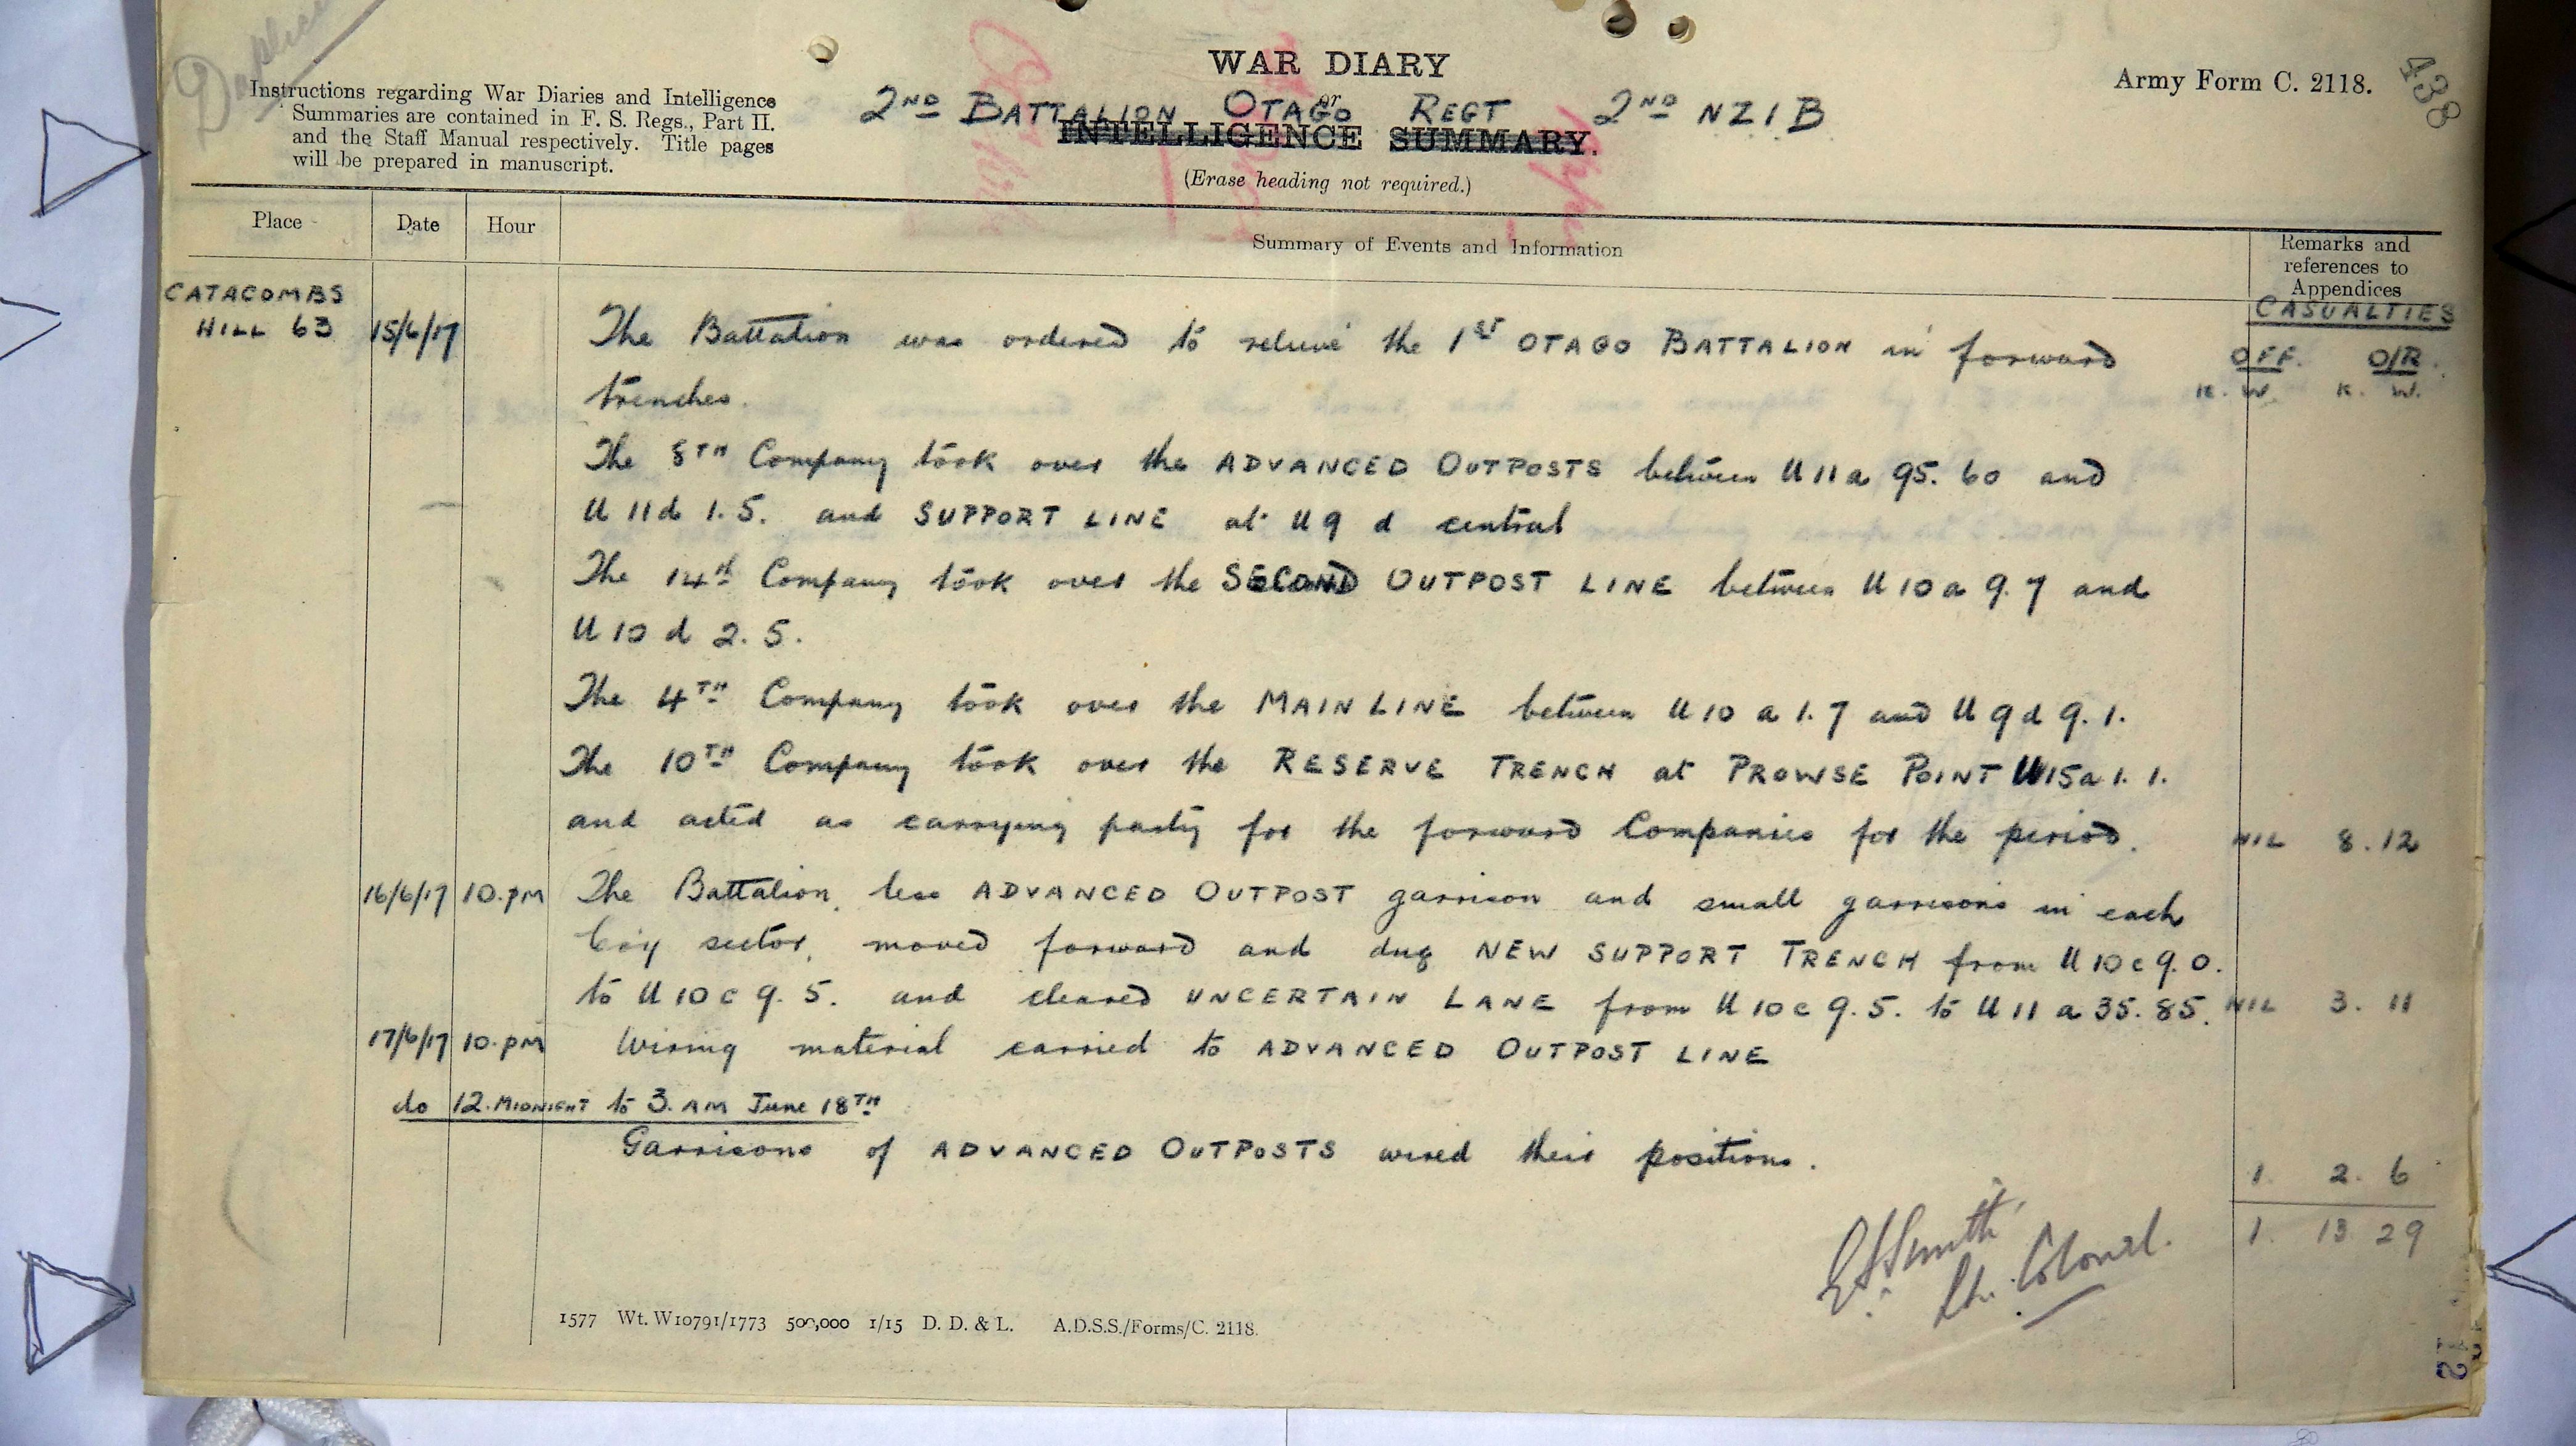 Duplicate
WAR DIARY
or
2ND BATTALION OTAGO REGT 2ND NZIB
INTELLIGENCE SUMMARY.
(Erase heading not required.)
Army Form C. 2118.
438
Instructions regarding War Diaries and Intelligence
Summaries are contained in F. S. Regs., Part II.
and the Staff Manual respectively. Title pages
will be prepared in manuscript.
Place Date Hour Summary of Events and Information Remarks and
references to
Appendices
CASUALTIES
OFF. O/R.
K. W. K. W.
CATACOMBS
HILL 63 15/6/17 The Battalion was ordered to relieve the 1ST OTAGO BATTALION in forward
trenches.
The 8TH Company took over the ADVANCED OUTPOSTS between U 11 a 95. 60 and
U 11d 1.5. and SUPPORT LINE at U 9 d central
The 14th Company took over the SECOND OUTPOST LINE between U 10 a 9.7 and
U 10 d 2. 5.
The 4TH Company took over the MAIN LINE between U 10 a 1.7 and U 9 d 9. 1.
The 10TH Company took over the RESERVE TRENCH at PROWSE POINT U15a 1. 1.
and acted as carrying party for the forward Companies for the period. NIL 8. 12
16/6/17 10.pm The Battalion, less ADVANCED OUTPOST garrison and small garrisons in each
Coy sector, moved forward and dug NEW SUPPORT TRENCH from U 10 c 9. 0.
to U 10 c 9. 5. and cleared UNCERTAIN LANE from U 10 c 9. 5. to U 11 a 35. 85. NIL 3. 11
17/6/17 10.pm Wiring material carried to ADVANCED OUTPOST LINE
do 12.MIDNIGHT to 3. AM June 18TH
Garrisons of ADVANCED OUTPOSTS wired their positions.
1. 2. 6
1. 13 29
Smith
Lt. Colonel.
1577 Wt. W10791/1773 500,000 1/15 D. D. & L. A.D.S.S./Forms/C. 2118.